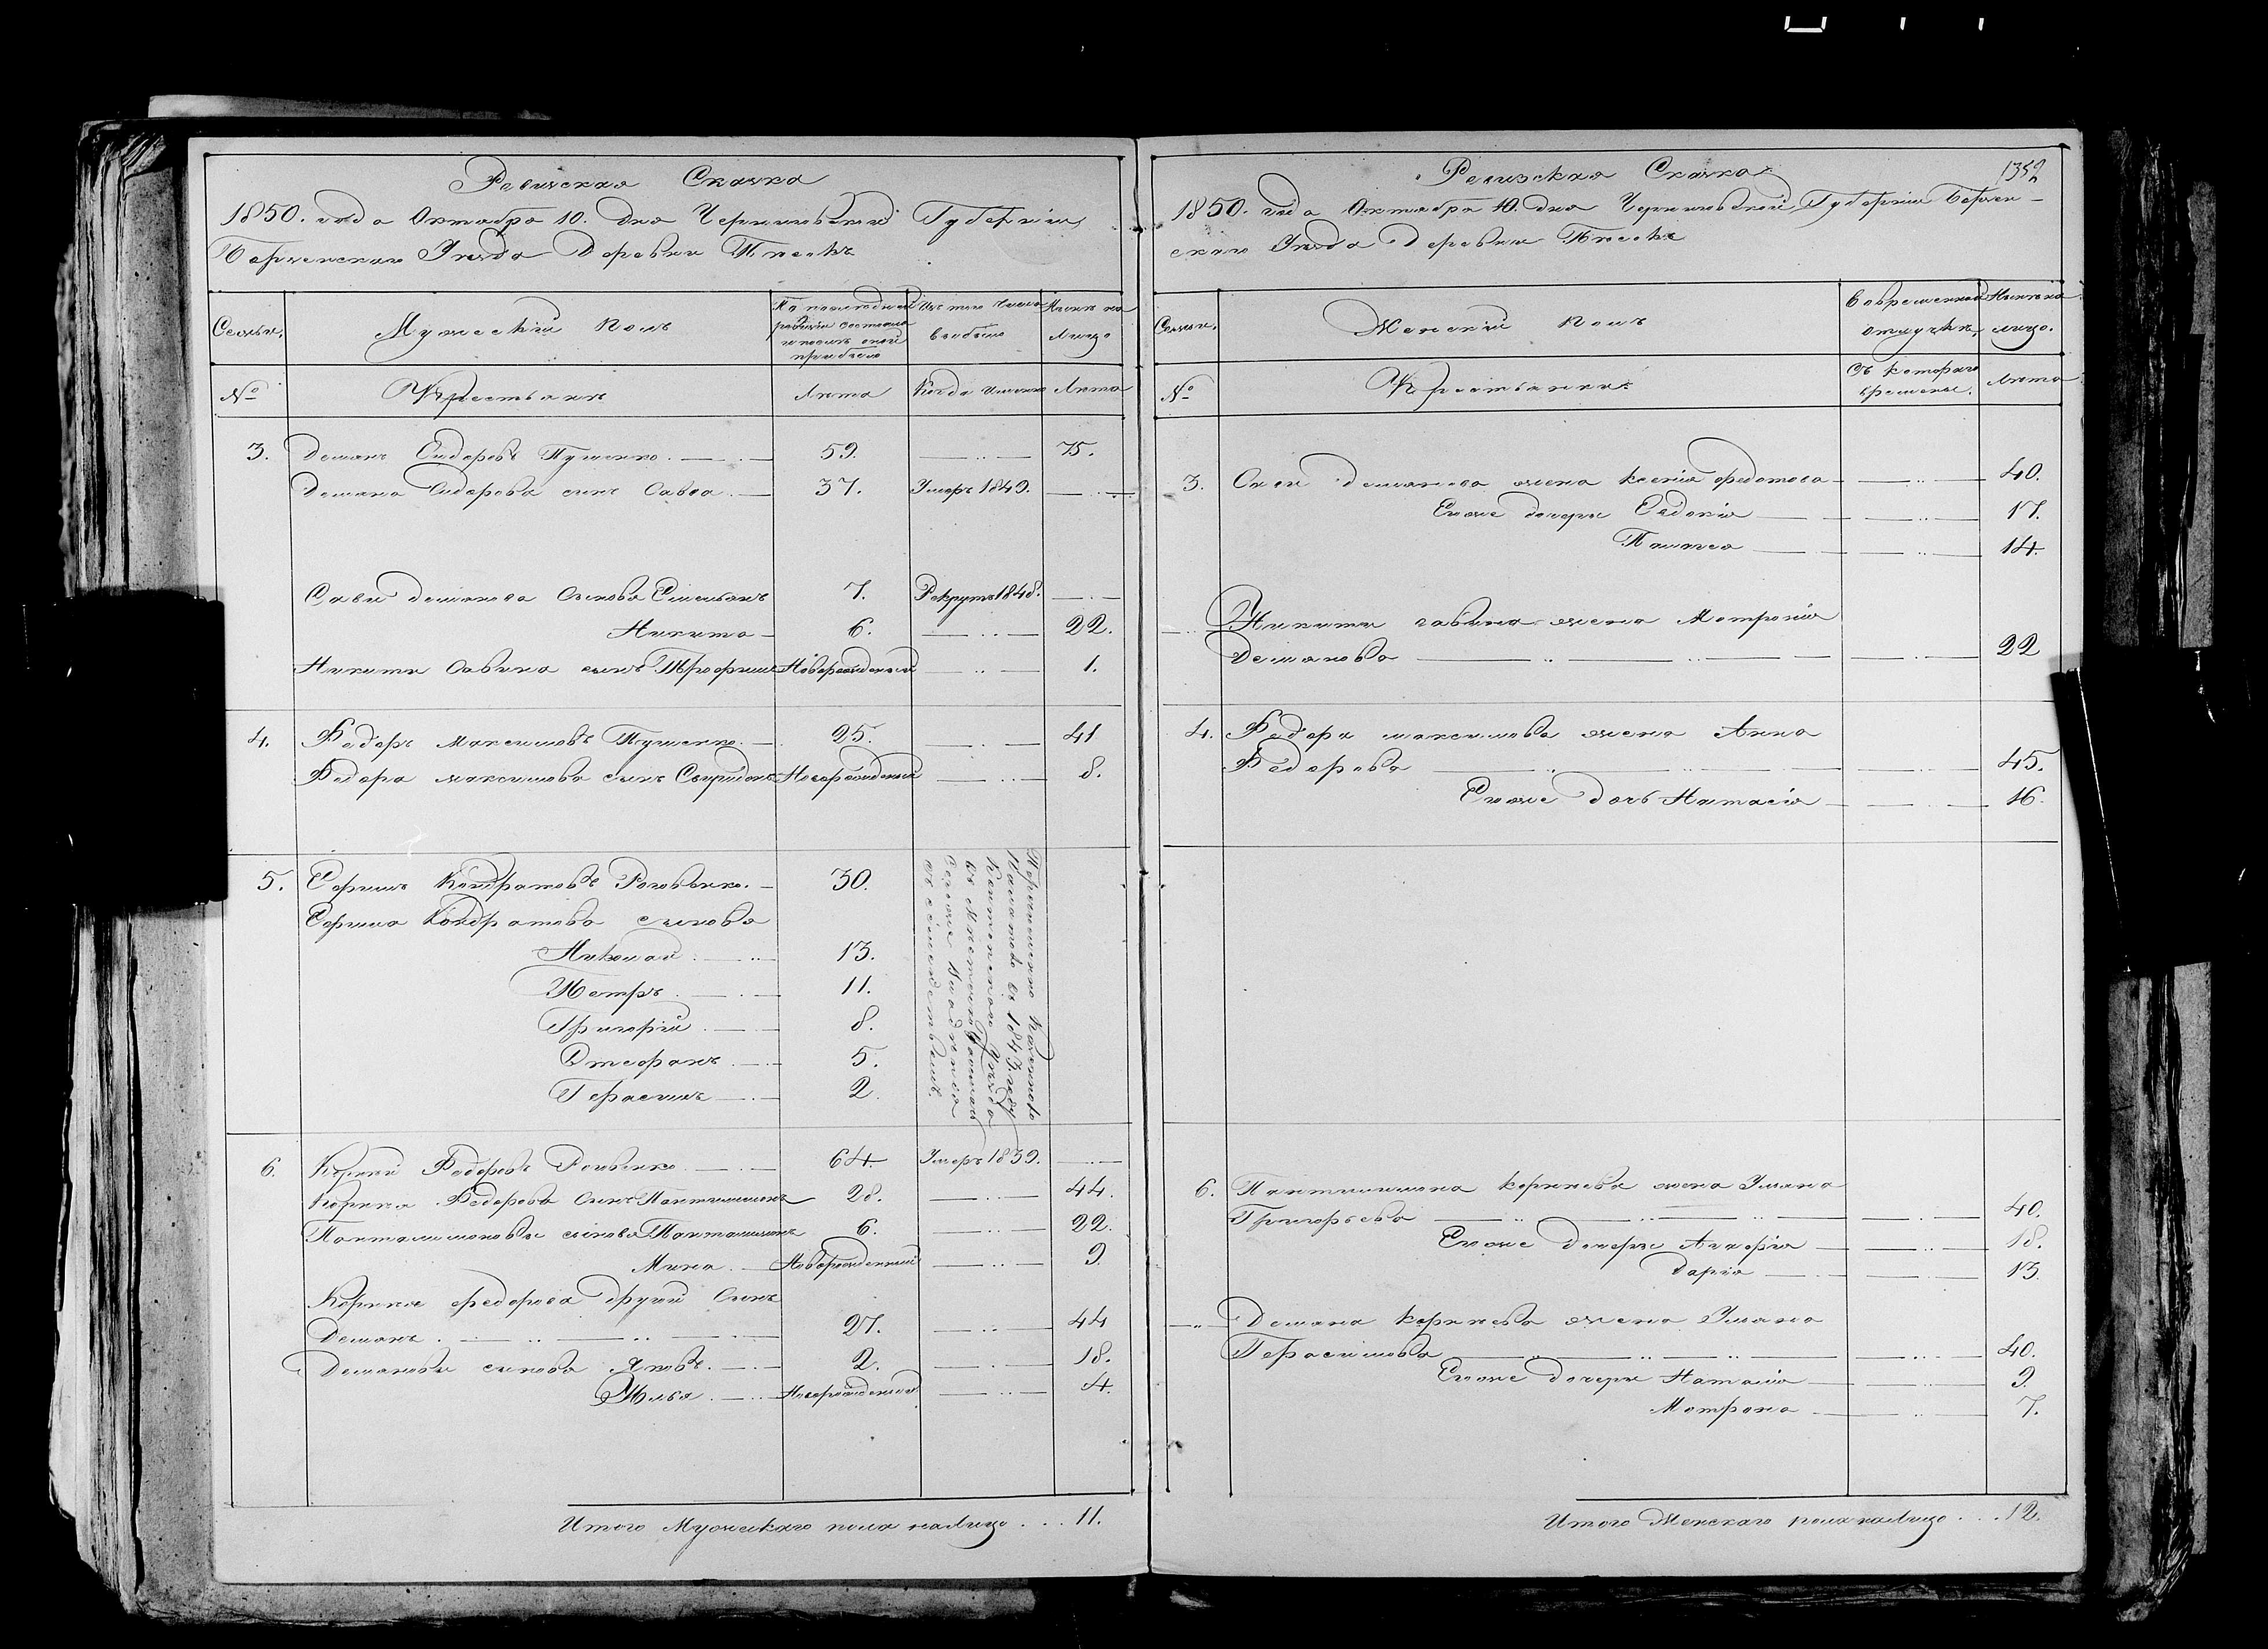 Ревизская Сказка
1850. года Октября 10. дня Черниговской Губерніи
Борзенскаго Уезда Деревни Песокъ
Семьи.
Мужескій полъ
По последней ревизіи состояло и после оной прибыло
Изъ того числа выбыло
Ныне на лицо
№
Крестьяне
Лета
Когда именно
Лета
3. Демянъ Сидоровъ Пушенко. 59. 75.
Демяна Сидорова сынъ Савва. 37. Умеръ 1849.
Савы Демянова сыновья Емельянъ 7. Рекрутъ 1848.
Никита 6. 22.
Никиты Савина сынъ Трофимъ Новорожденный 1.
4. Федоръ Максимовъ Пушенко. 25. 41
Федора Максимова сынъ Свиридонъ Новорожденный 8.
5. Ефимъ Кондратовъ Роговенко. 30.
Ефима Кондратова сыновья
Николай 13.
Петръ. 11.
Григорій 8.
Стефанъ 5.
Герасимъ 2.
въ 1843 году
6. Корній Федоровъ Роговенко 64. Умеръ 1839.
Корнія Федорова сынъ Пантилимонъ 28. 44.
Пантилимоновы сыновья Пантилимонъ 6. 22.
Мина. Новорожденный 9.
Корнія Федорова другій сынъ
Демянъ. 27. 44
Демяновы сыновья Яковъ. 2. 18.
Илья. Новорожденный 4.
Итого Мужескаго пола налицо . . . 11.
Ревизская Сказка 1352
1850. года Октября 10. дня Черниговской Губерніи Борзен-
скаго Уезда Деревни Песокъ
Семьи.
Женскій полъ
Во временной отлучке
Ныне на лицо.
№
Крестьянки
Съ котораго времени.
Лета
3. Савы Демянова жена Ксенія Федотова 40.
Егоже дочери Евдокія 17.
Палагея 14.
Никиты Савина жена Матронія
Демянова 22
4. Федора Максимова жена Анна
Федорова 45.
Егоже дочь Наталія 16.
6. Пантилимона Корніева жена Уляна
Григорьева 40.
Егоже дочери Агафія 18.
Дарія 13.
Демяна Корніева жена Уляна
Герасимова 40.
Егоже дочери Наталія 9.
Матрона 7.
Итого Женскаго пола налицо . . . 12.